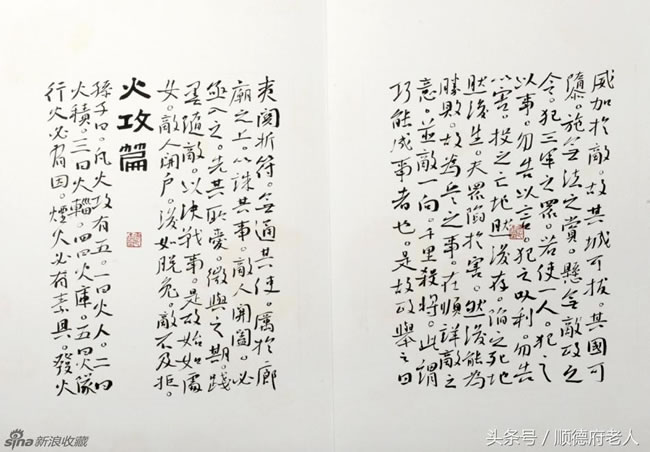 威加於敵。故其城可拔。其國可
隳。施無法之賞。懸無政之
令。犯三軍之眾。若使一人。犯之
以事。勿告以言。犯之以利。勿告
以害。投之亡地然後存。陷之死地
然後生。夫眾陷於害。然後能為
勝敗。故為兵之事。在順詳敵之
意。並敵一向。千里殺將。此謂
巧能成事者也。是故政舉之日
夷關折符。無通其使。厲於廊
廟之上。以誅其事。敵人開闔。必
亟入之。先其所愛。微與之期。踐
墨隨敵。以決戰事。是故始如處
女。敵人開戶。後如脫兔。敵不及拒。
火攻篇
孫子曰。凡火攻有五。一曰火人。二曰
火積。三曰火輜。四曰火庫。五曰火隊。
行火必有因。煙火必有素具。發火
sina新浪收藏
头条号／顺德府老人